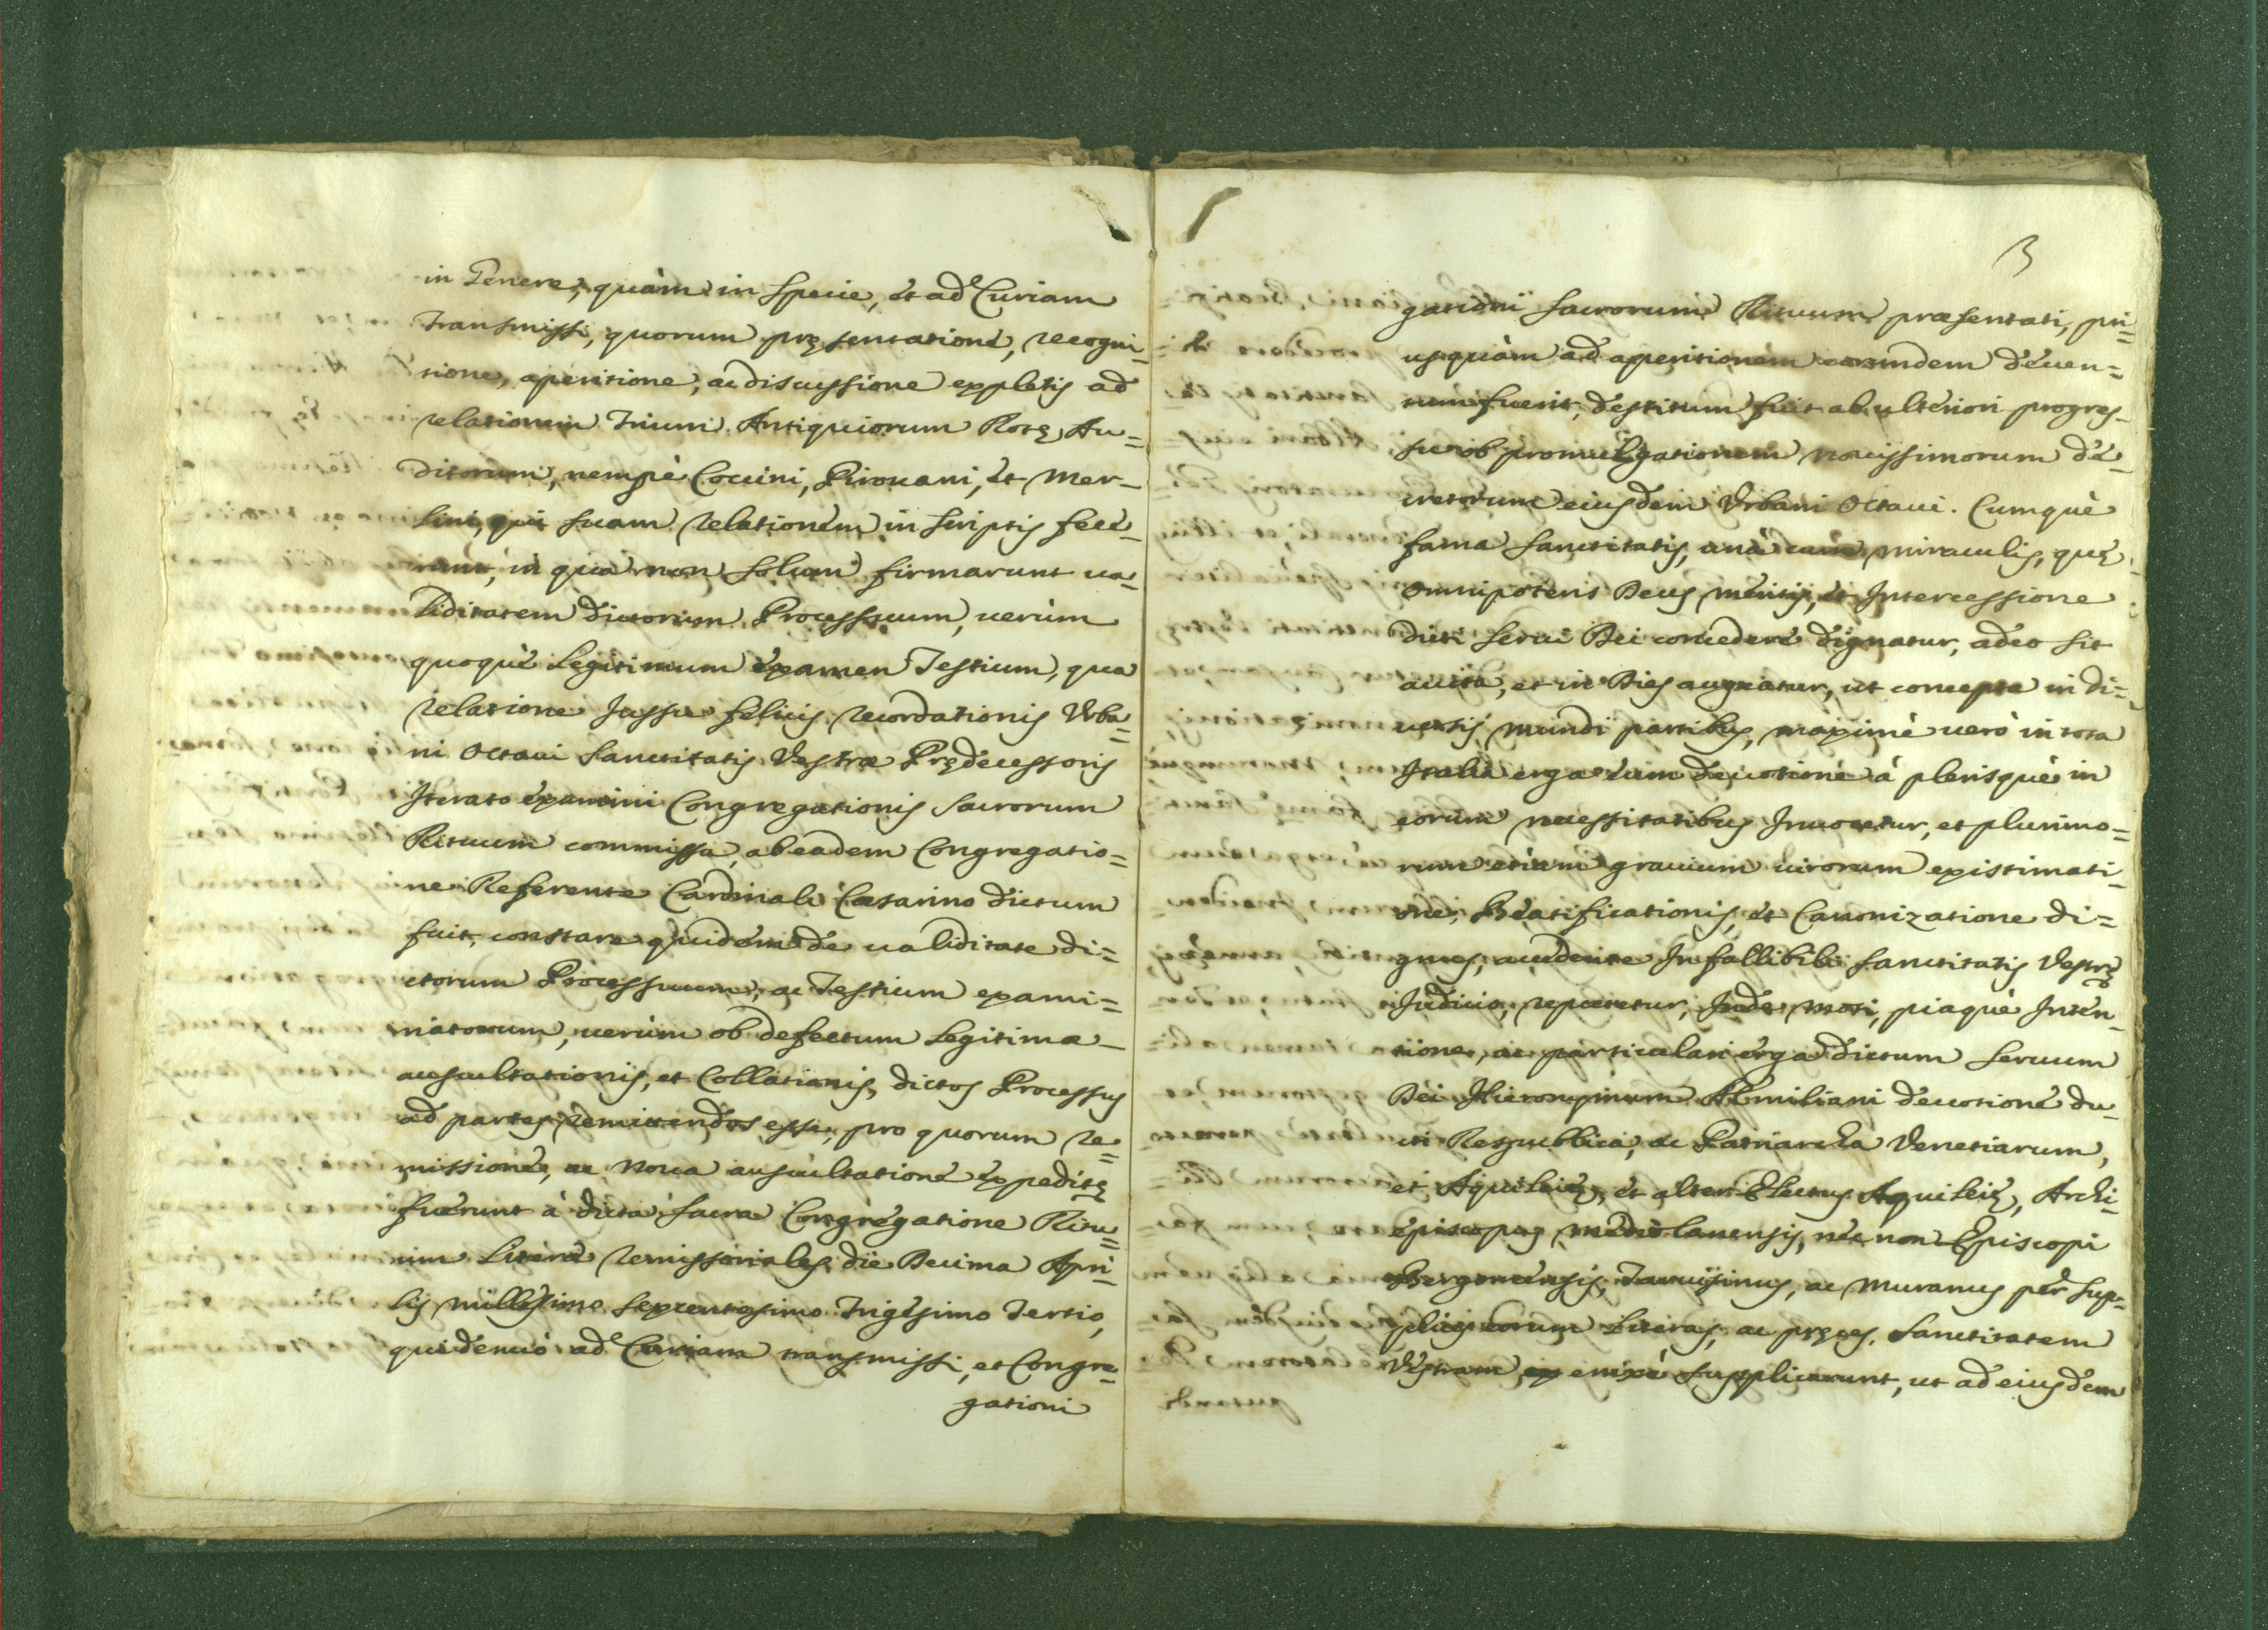 in Genere, quàm in specie, et ad Curiam
transmissi, quorum pręsentatione, recogni=
tione, apertione, ac discussione expletis ad
relationem Trium Antiquiorum Rotę Au=
ditorum, nempè Coccini, Pirouani, et Mer-
lini, qui suam relationem in scriptis fece-
runt, in qua non solum firmarunt ua=
liditatem dictorum Processuum, uerùm
quoquè Legitimum examen Testium, qua
relatione Jussu felicis recordationis Vrba=
ni Octaui Sanctitatis Vestræ Prędecessoris
Iterato examini Congregationis Sacrorum
Rituum commissa, ab eadem Congregatio=
ne Referente Cardinali Cæsarino dictum
fuit, constare quidem de ualiditate di=
ctorum Processuum, ac Testium exami=
natorum, uerùm ob defectum Legitimæ
auscultationis, et Collationis, dictos Processus
ad partes remittendos esse, pro quorum re=
missione, ac noua auscultatione expeditę
fuerunt à dicta sacra Congregatione Ritu=
um Literæ remissoriales die Decima Apri=
lis millesimo sexcentesimo Trigesimo Tertio,
qui denuò ad Curiam transmissi, et Congre=
gationi
3
gationi sacrorum Rituum præsentati, pri=
usquàm ad apertionem eorundem deuen=
tum fuerit, destitum fuit ab ulteriori progres-
su ob promulgationem nouissimorum de-
cretorum eiusdem Vrbani Octaui. Cumquè
fama sanctitatis, unà cum miraculis, quę
omnipotens Deus meritis, et Intercessione
dicti serui Dei concedere dignatur, adeo sit
aucta, et in Dies augeatur, ut concepta in di=
uersis mundi partibus, maximè uerò in tota
Italia erga eum deuotione à plerisquè in
eorum necessitatibus Inuocetur, et plurimo=
rum etiam grauium uirorum existimati-
one, Beatificationis, et Canonizatione di=
gnus, accedente Infallibili Sanctitatis Vestrę
Judicio, reputetur, Inde moti, piaquè Inten-
tione, ac particulari erga dictum seruum
Dei Hieronymum Æmiliani deuotione du-
cti Respublica, ac Patriarcha Venetiarum,
et Aquileię, et alter Electus Aquileię, Archi-
episcopus mediolanensis, nec non Episcopi
Bergomensis, Taruisinus, ac Muranus per sup=
plices eorum Literas, ac pręces, Sanctitatem
Vestram enixè supplicarunt, ut ad eiusdem